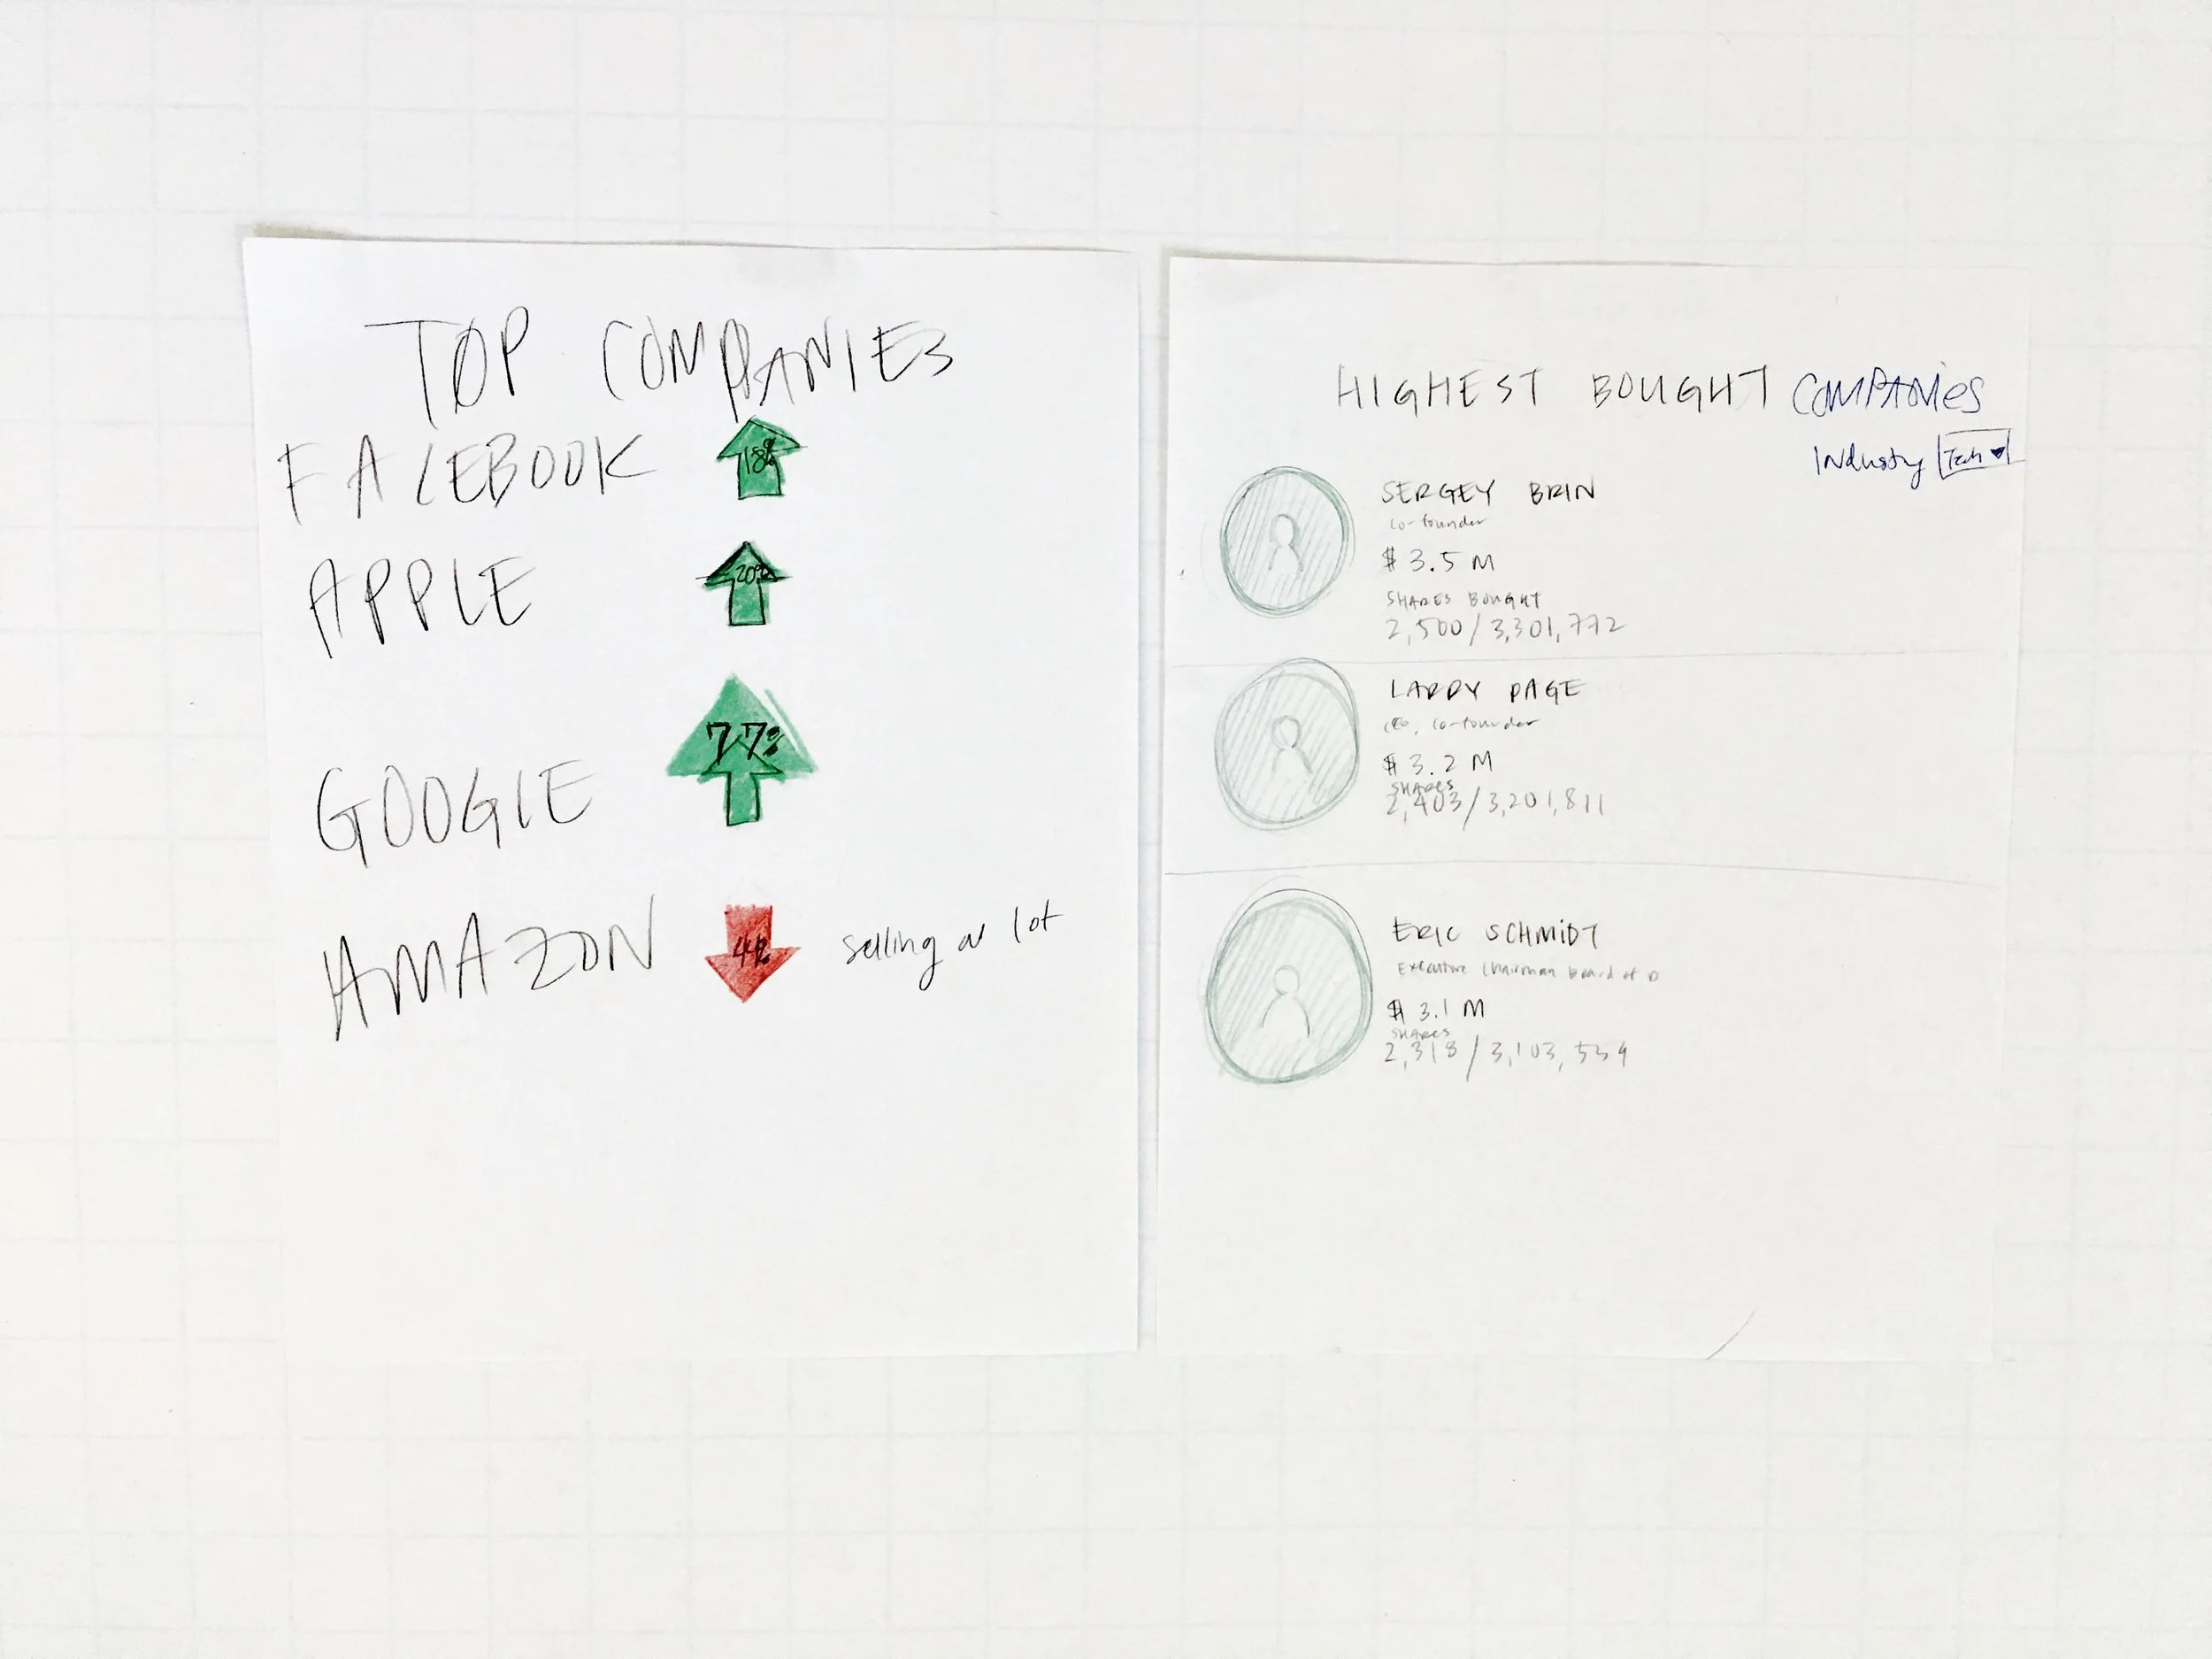 TOP COMPANIES
FACEBOOK 18%
APPLE 20%
GOOGLE 77%
AMAZON 4% selling a lot
HIGHEST BOUGHT COMPANIES
Industry Tech
SERGEY BRIN
co-founder
$ 3.5 M
SHARES BOUGHT
2,500 / 3,301,772
LARRY PAGE
CEO, co-founder
$ 3.2 M
SHARES
2,403 / 3,201,811
ERIC SCHMIDT
Executive Chairman Board of D
$ 3.1 M
SHARES
2,318 / 3,103,534